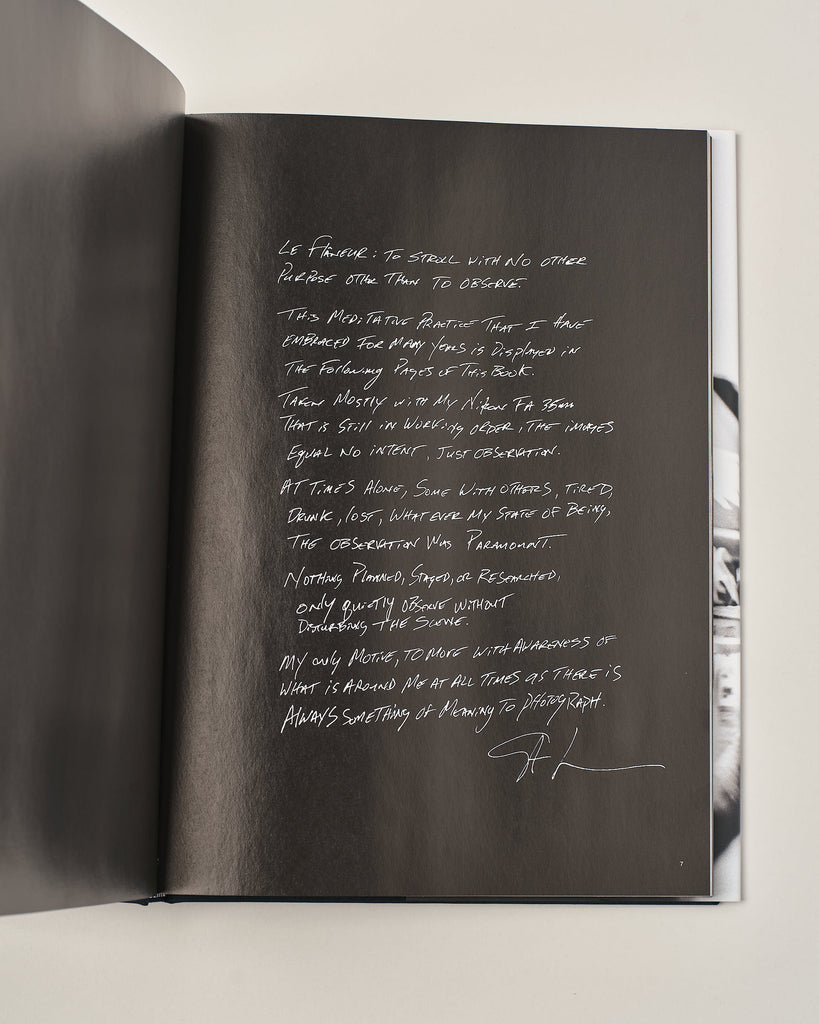 LE FLÂNEUR : TO STROLL WITH NO OTHER
PURPOSE OTHER THAN TO OBSERVE.
THIS MEDITATIVE PRACTICE THAT I HAVE
EMBRACED FOR MANY YEARS IS DISPLAYED IN
THE FOLLOWING PAGES OF THIS BOOK.
TAKEN MOSTLY WITH MY NIKON FA 35mm
THAT IS STILL IN WORKING ORDER, THE IMAGES
EQUAL NO INTENT, JUST OBSERVATION.
AT TIMES ALONE, SOME WITH OTHERS, TIRED,
DRUNK, LOST, WHAT EVER MY STATE OF BEING,
THE OBSERVATION WAS PARAMOUNT.
NOTHING PLANNED, STAGED, OR RESEARCHED,
ONLY QUIETLY OBSERVE WITHOUT
DISTURBING THE SCENE.
MY ONLY MOTIVE, TO MOVE WITH AWARENESS OF
WHAT IS AROUND ME AT ALL TIMES AS THERE IS
ALWAYS SOMETHING OF MEANING TO PHOTOGRAPH.
7